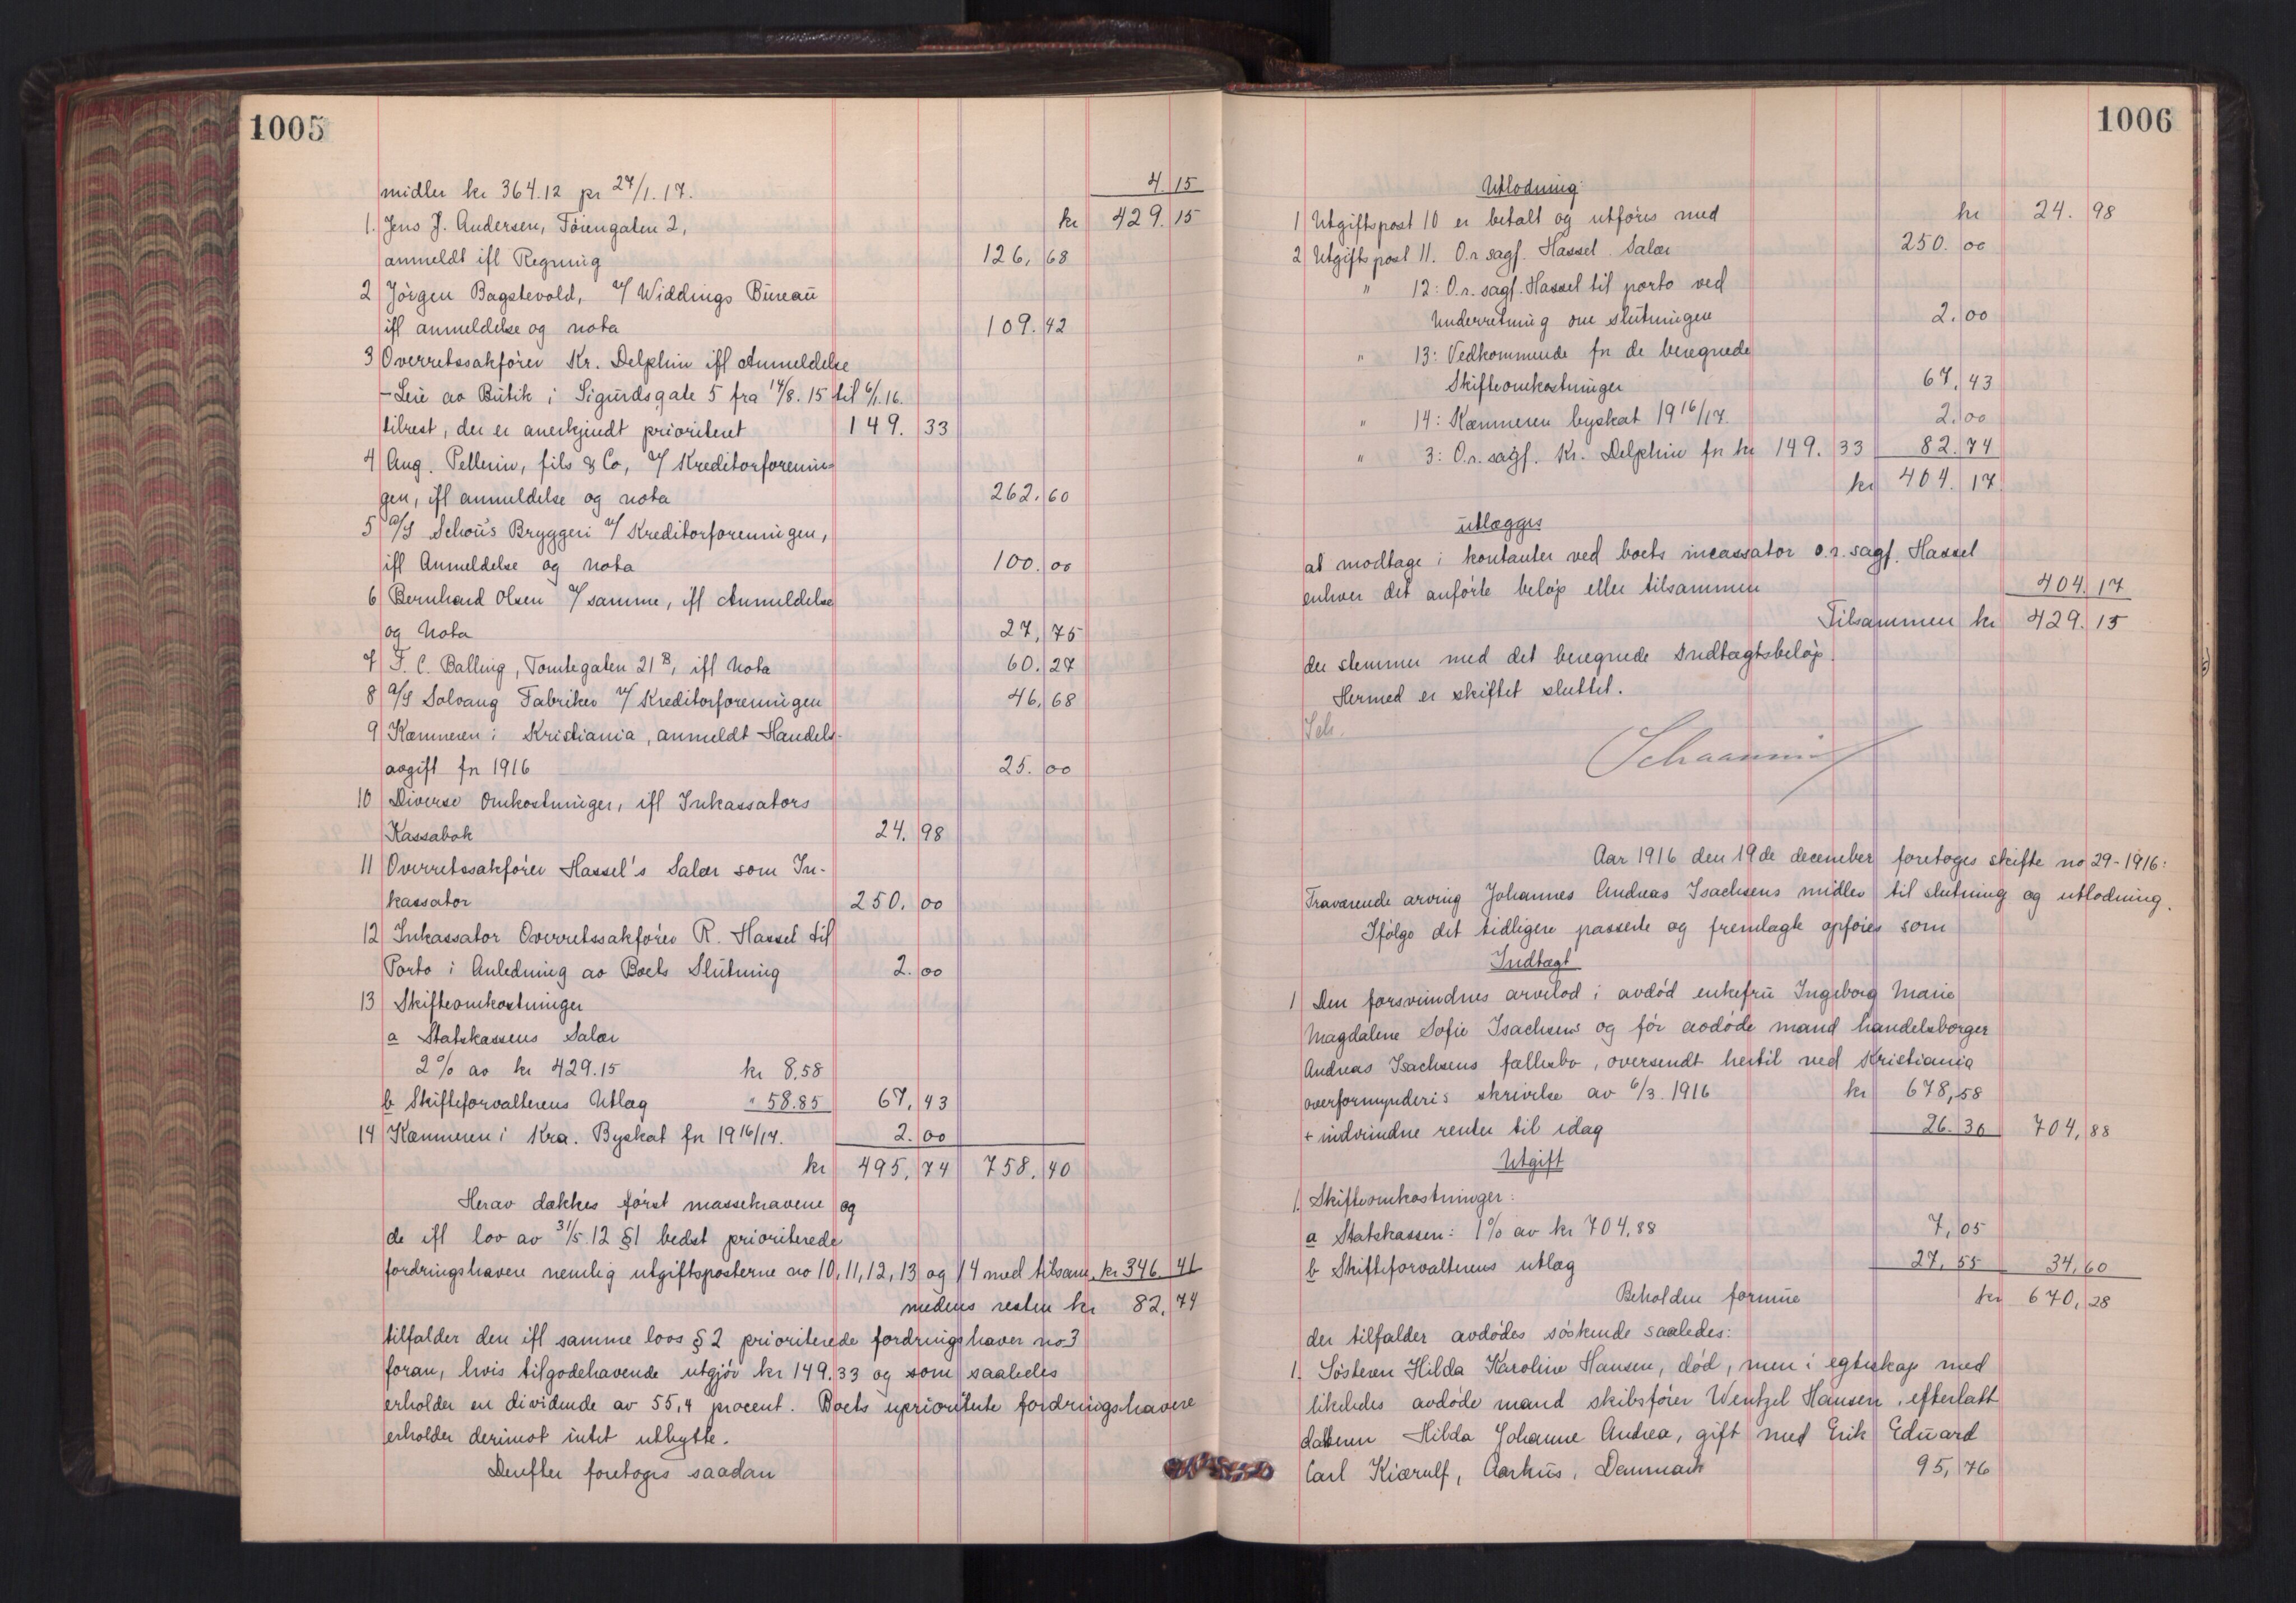 1005
midler kr 364.12 pr 27/1.17. 4.15
kr 429.15
1. Jens J. Andersen, Töiengaten 2,
anmeldt ifl Regning 126,68
2 Jörgen Bagstevold, v/ Widdings Büreaü
ifl anmeldelse og nota 109.42
3 Overretssakförer Kr. Delphin ifl Anmeldelse
- Leie av Bütik i Sigürdsgate 5 fra 14/8.15 til 6/1.16.
tilrest, der er anerkjendt prioritert 149.33
4 Aug. Pellerin, fils & Co, v/ Kreditorforenin-
gen, ifl anmeldelse og nota 262.60
5 A/S Schoü's Bryggeri v/ Kreditorforeningen,
ifl Anmeldelse og nota 100.00
6 Bernhard Olsen v/ samme, ifl Anmeldelse
og Nota 27,75
7 F. C. Balling, Tomtegaten 21 B, ifl Nota 60.27
8 A/S Solvang Fabriker v/ Kreditorforeningen 46,68
9 Kæmneren i Kristiania, anmeldt Handels-
avgift fn 1916 25.00
10 Diverse Omkostninger, ifl Inkassators
Kassabok 24.98
11 Overretssakförer Hassel's Salær som In-
kassator 250.00
12 Inkassator Overretssakförer R. Hassel til
Porto i Anledning av Boets Slütning 2.00
13 Skifteomkostninger
a Statskassens Salær
2% av kr 429.15 kr 8.58
b Skifteforvalterens Utlæg " 58.85 67,43
14 Kæmneren i Kra. Byskat fn 1916/17. 2.00
kr 495,74 758.40
Herav dækkes först massekravene og
de ifl lov av 31/5.12 §1 bedst prioriterede
fordringshavere nemlig utgiftsposterne no 10, 11, 12, 13 og 14 med tilsam. kr 346 41
medens resten kr 82.74
tilfalder den ifl samme lovs §2 prioriterede fordringshaver no 3
foran, hvis tilgodehavende utgjör kr 149.33 og som saaledes
erholder en dividende av 55,4 procent. Boets uprioriterte fordringshavere
erholder derimot intet utbytte.
Derefter foretoges saadan
1006
Utlodning:
1 Utgiftspost 10 er betalt og utföres med kr 24.98
2 Utgiftspost 11. O.r.sagf. Hassel Salær 250.00
" 12: O.r.sagf. Hassel til porto ved
Underretning om slütningen 2.00
" 13: Vedkommende fn de beregnede
Skifteomkostninger 67,43
" 14: Kæmneren byskat 1916/17. 2.00
" 3: O.r.sagf. Kr. Delphin fn kr 149.33 82.74
kr 404.17
ütlægges
at modtage i kontanter ved boets incassator o.r.sagf. Hassel
enhver det anförte belöp eller tilsammen 404.17
Tilsammen kr 429.15
der stemmer med det beregnede Indtægtsbelöp.
Hermed er skiftet sluttet.
Sch.
Schaanning
Aar 1916 den 19de december foretoges skifte no 29-1916:
Fraværende arving Johannes Andreas Isachsens midler til slutning og utlodning.
Ifölge det tidligere passerte og fremlagte opföres som
Indtægt
1 Den forsvündnes arvelod i avdöd enkefrü Ingeborg Marie
Magdalene Sofie Isachsens og för avdöde mand handelsborger
Andreas Isachsens fællesbo, oversendt hertil ved Kristiania
overformynderis skrivelse av 6/3.1916 kr 678,58
+ indvündne renter til idag 26.30 704,88
Utgift
1. Skifteomkostninger:
a Statskassen: 1% av kr 704,88 7,05
b Skifteforvalterens utlæg 27,55 34,60
Beholden formüe kr 670,28
der tilfalder avdödes söskende saaledes:
1. Sösteren Hilda Karoline Hansen, död, men i egteskap med
likeledes avdöde mand skibsförer Wentzel Hansen, efterlatt
datteren Hilda Johanne Andrea, gift med Erik Edüard
Carl Kiærulf, Aarhüs, Danmark 95,76